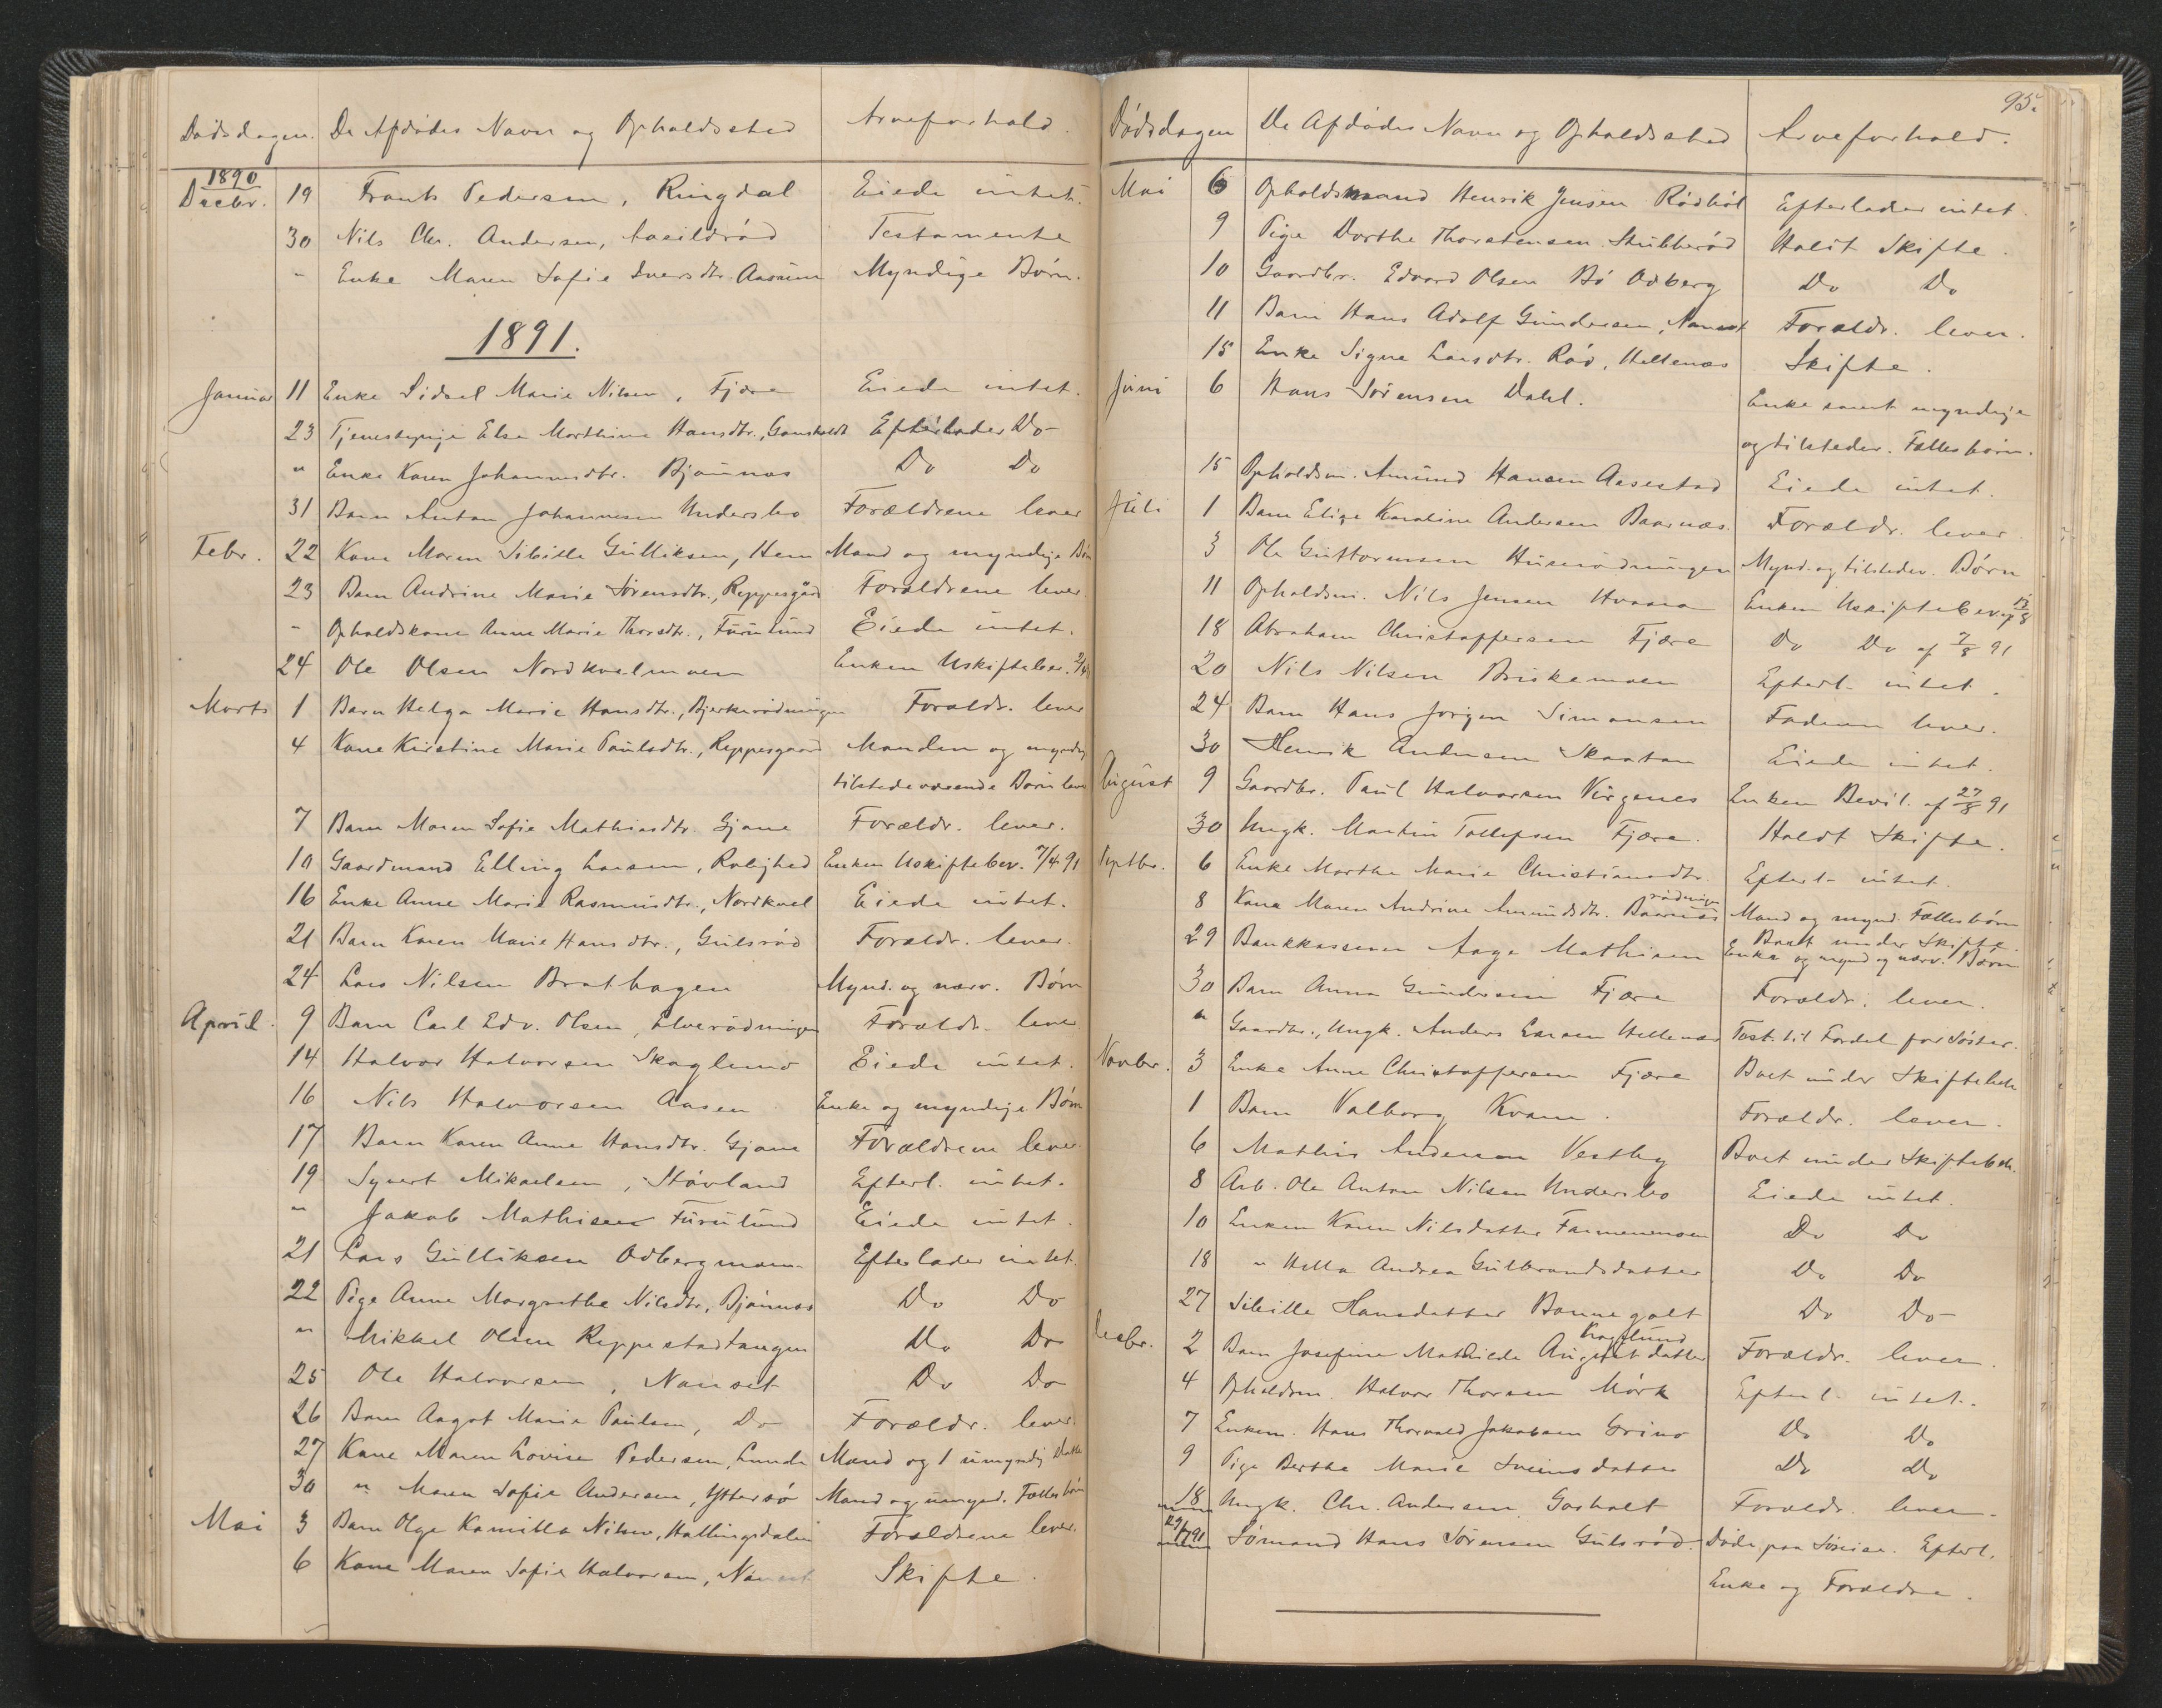 Dødsdagen. De Afdødes Navn og Opholdssted Arveforhold.
1890
Decbr. 19 Frants Pedersen, Ringdal Eiede intet.
30 Nils Chr. Andersen, Testamente
" Enke Maren Sofie Iversdtr. Aasrum Myndige Børn.
1891.
Januar 11 Enke Sidsel Marie Nilsen, Fjære Eiede intet.
23 Tjenestepige Else Marthine Hansdtr., Efterlader Do
" Enke Karen Johannesdtr. Bjønnes Do Do
31 Barn Anton Johannesen Undersbo Forældrene lever
Febr. 22 Kone Maren Sibille Gulliksen, Hem Mand og myndige Børn
23 Barn Andrine Marie Sørensdtr., Reppesgård Forældrene lever
" Opholdskone Anne Marie Thorsdtr., Furulund Eiede intet.
24 Ole Olsen Nordkvelmoen Enken Uskiftebev.
Marts 1 Barn Helga Marie Hansdtr., Bjerkerødningen Forældr. lever
4 Kone Kirstine Marie Paulsdtr., Reppesgaard Manden og myndig
tilstedeværende Børn lever
7 Barn Maren Sofie Mathiasdtr. Gjone Forældr. lever.
10 Gaardmand Elling Larsen, Rolighed Enken Uskiftebev. 7/4 91
16 Enke Anne Marie Rasmusdtr., Nordkvel Eiede intet.
21 Barn Karen Marie Hansdtr., Gulsrød Forældr. lever.
24 Lars Nilsen Brathagen Mynd. og nærv. Børn
April. 9 Barn Carl Edv. Olsen, Elverødningen Forældr. lever
14 Halvor Halvorsen Skoglund Eiede intet.
16 Nils Halvorsen Aasen Enke og myndige Børn
17 Barn Karen Anne Hansdtr. Gjone Forældrene lever.
19 Syvert Mikaelsen, Støvland Efterl. intet.
" Jakob Mathisen Furulund Eiede intet.
21 Lars Gulliksen Odbergmoen Efterlader intet.
22 Pige Anne Margrethe Nilsdtr., Bjønnes Do Do
" Mikkel Olsen Reppestadtangen Do Do
25 Ole Halvorsen, Nanset Do Do
26 Barn Aagot Marie Paulsen, Do Forældr. lever.
27 Kone Maren Lovise Pedersen, Lunde Mand og 1 umyndig Datter
30 " Maren Sofie Andersen, Yttersø Mand og umynd. Fællesbørn
Mai 3 Barn Olga Kamilla Nilsen, Hallingsdalen Forældrene lever.
6 Kone Maren Sofie Halvorsen, Nanset Skifte.
95.
Dødsdagen De Afdødes Navn og Opholdssted Arveforhold.
Mai 6 Opholdsmand Henrik Jensen Rødbøl Efterlader intet.
9 Pige Dorthe Thorstensen Stubberød Holdt Skifte.
10 Gaardbr. Edvard Olsen Bø Odberg Do Do
11 Barn Hans Adolf Gundersen, Nanset Forældr. lever.
15 Enke Signe Larsdtr. Rød, Hellenes Skifte.
Juni 6 Hans Sørensen Dahl. Enke samt myndige
og tilsteder. Fællesbørn.
15 Opholdsm. Amund Hansen Aasestad Eiede intet.
Juli 1 Barn Elise Karoline Andersen Baarnes. Forældr. lever.
3 Ole Guttormsen Mynd. og tilsteder. Børn
11 Opholdsm. Nils Jensen Hvaara Enken Uskiftebev. af
18 Abraham Christoffersen Fjære Do Do af 7/8 91
20 Nils Nilsen Briskemoen Efterl. intet.
24 Barn Hans Jørgen Simonsen Faderen lever.
30 Henrik Andersen Skaatan Eiede intet.
August 9 Gaardbr. Paul Halvorsen Virgenes Enken Bevil. af 27/8 91
30 Ungk. Martin Tollefsen Fjære. Holdt Skifte.
Septbr. 6 Enke Marthe Marie Christiansdtr. Efterl. intet.
8 Kone Maren Andrine Amundsdtr. Baarnesrødningen Mand og mynd. Fællesbørn
29 Bankkasserer Aage Mathisen Boet under Skifte.
Enke og mynd og nærv. Børn
30 Barn Anna Gundersen Fjære Forældr. lever.
" Gaardbr., Ungk. Anders Larsen Hellenes Test. til Fordel for Søster.
Novbr. 3 Enke Anne Christoffersen Fjære Boet under Skiftebeh.
1 Barn Valborg Kvam. Forældr. lever.
6 Mathis Andersen Vestby Boet under Skiftebeh.
8 Arb. Ole Anton Nilsen Undersbo Eiede intet.
10 Enken Karen Nilsdatter Farmenmoen Do Do
18 " Helle Andrea Gulbrandsdatter Do Do
27 Sibille Hansdatter Bonnegolt Do Do
Decbr. 2 Barn Josefine Mathilde Augustdatter Skoglund Forældr. lever.
4 Opholdsm. Halvor Thorsen Mørk Efterl. intet.
7 Enkem. Hans Thorvald Jakobsen Grino Do Do
9 Pige Berthe Marie Sveinsdatter Do Do
18 Ungk. Chr. Andersen Gosholt Forældr. lever.
Sømand Hans Sørensen Gulsrød. Døde paa Søreise. Efterl.
Enke og Forældre.